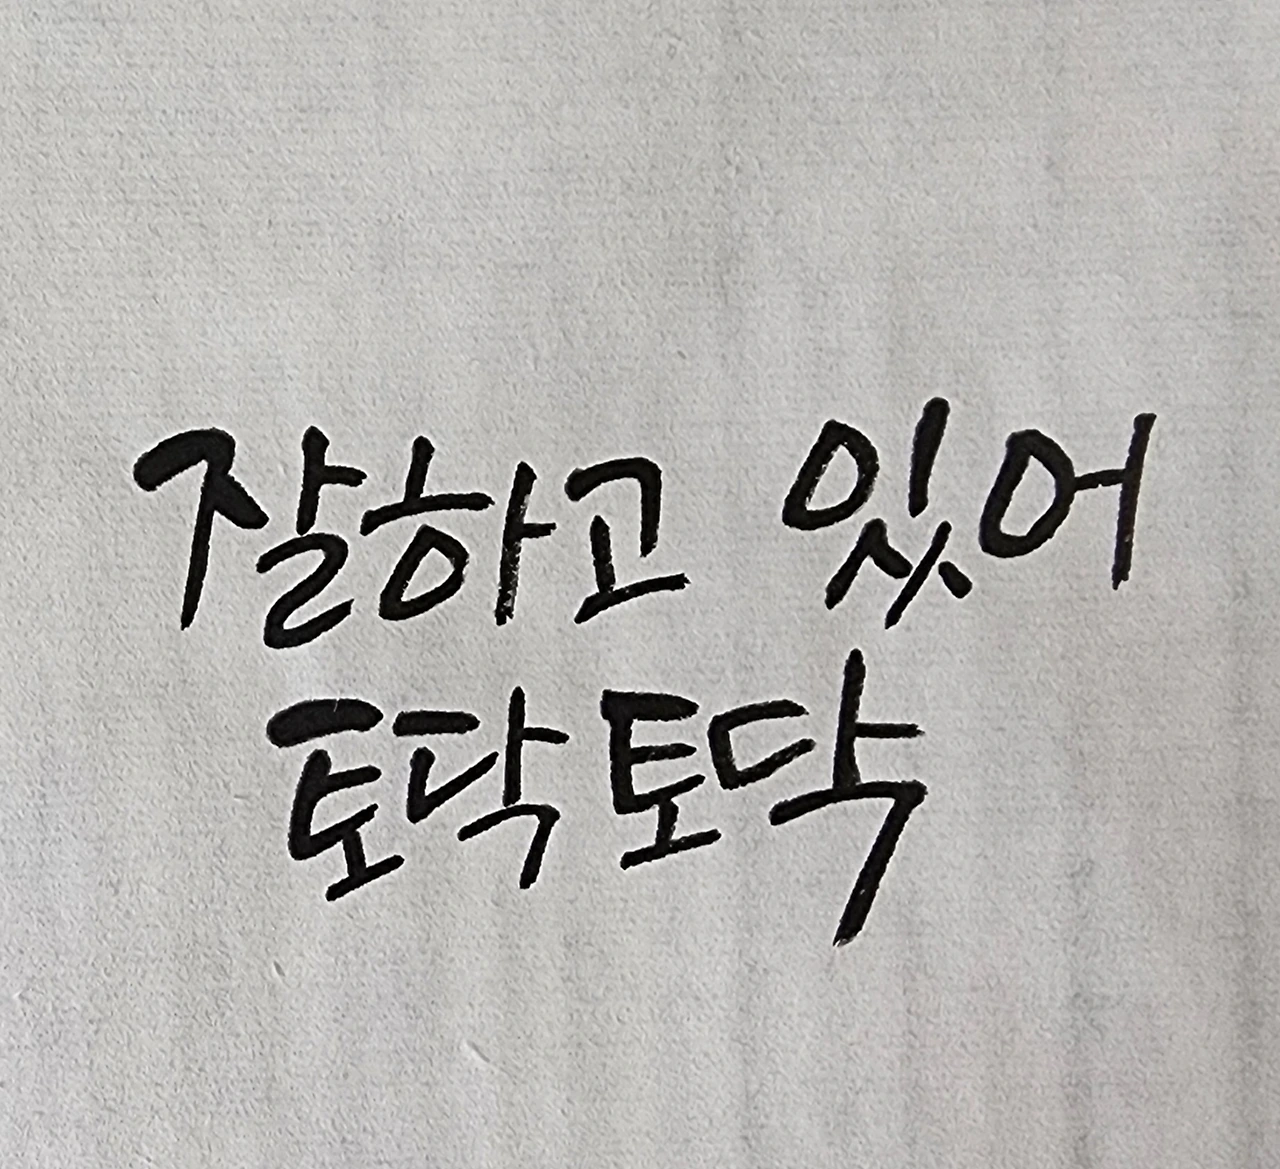 잘하고 있어
토닥토닥